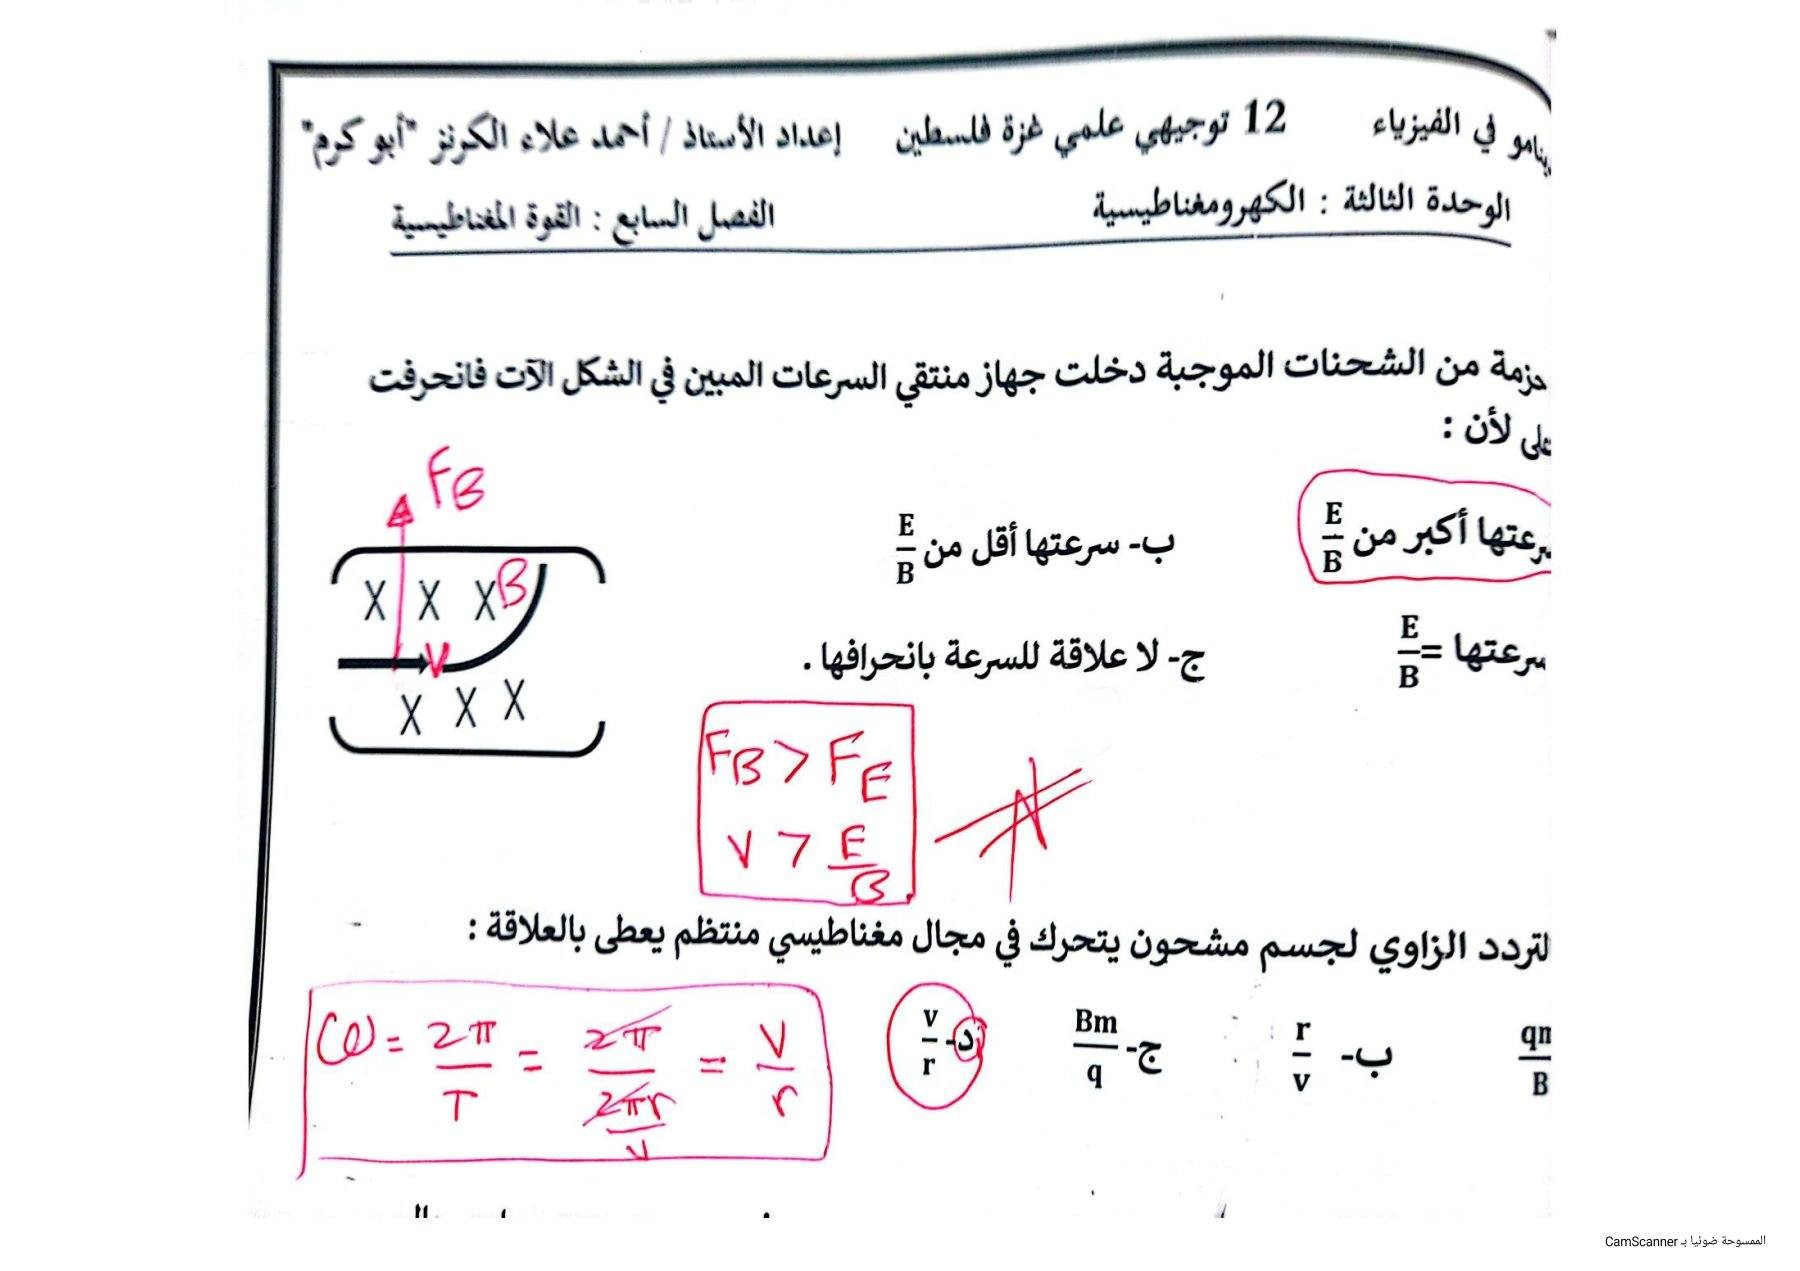 في الفيزياء 12 توجيهي علمي غزة فلسطين إعداد الأستاذ / أحمد علاء الكرنز "أبو كرم"
الوحدة الثالثة : الكهرومغناطيسية الفصل السابع : القوة المغناطيسية
حزمة من الشحنات الموجبة دخلت جهاز منتقي السرعات المبين في الشكل الآت فانحرفت
لأن :
سرعتها أكبر من E/B ب- سرعتها أقل من E/B
سرعتها = E/B ج- لا علاقة للسرعة بانحرافها .
FB
X X X B
V
X X X
FB > FE
V > E/B
التردد الزاوي لجسم مشحون يتحرك في مجال مغناطيسي منتظم يعطى بالعلاقة :
B ب- r/v ج- Bm/q د- v/r
ω = 2π/T = 2π/(2πr/V) = V/r
الممسوحة ضوئيا بـ CamScanner